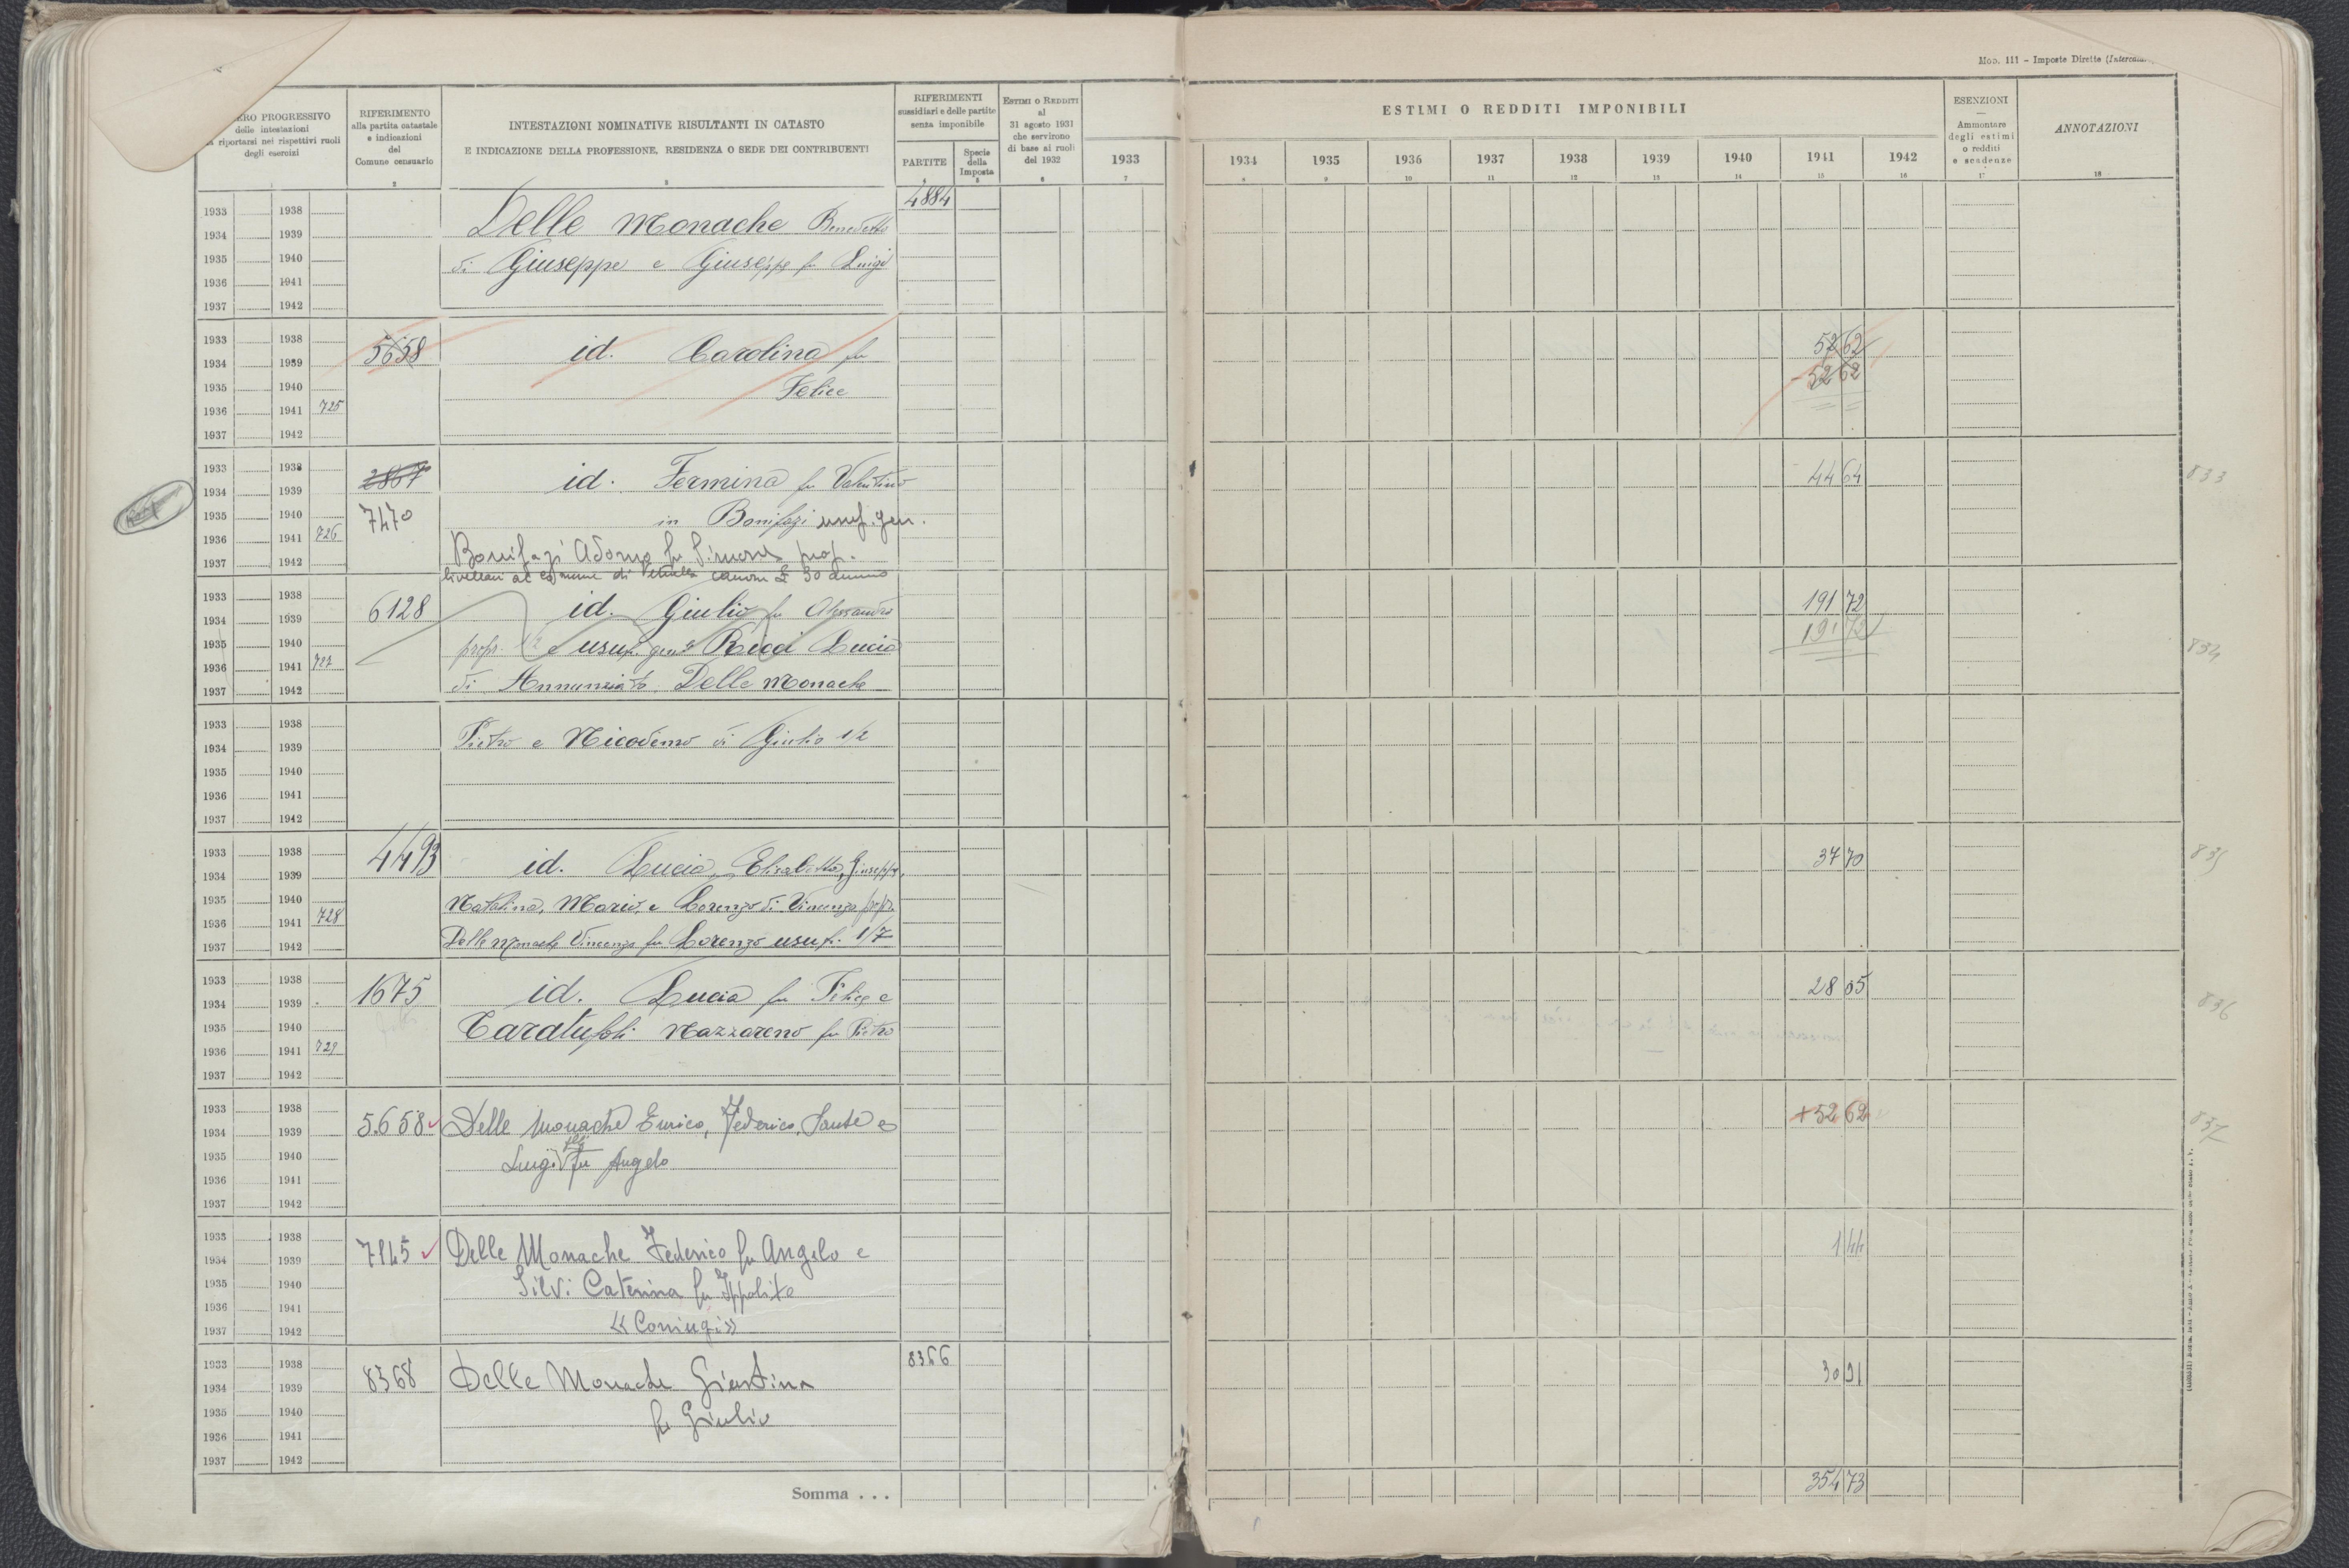 Mod. 111 - Imposte Dirette
ERO PROGRESSIVO
delle intestazioni
riportarsi nei rispettivi ruoli
degli esercizi
1
RIFERIMENTO
alla partita catastale
e indicazioni
del
Comune censuario
2
INTESTAZIONI NOMINATIVE RISULTANTI IN CATASTO
E INDICAZIONE DELLA PROFESSIONE, RESIDENZA O SEDE DEI CONTRIBUENTI
3
RIFERIMENTI
sussidiari e delle partite
senza imponibile
PARTITE
4
Specie
della
Imposta
5
ESTIMI O REDDITI
al
31 agosto 1931
che servirono
di base ai ruoli
del 1932
6
1933
7
ESTIMI O REDDITI IMPONIBILI
1934 1935 1936 1937 1938 1939 1940 1941 1942
8 9 10 11 12 13 14 15 16
ESENZIONI
Ammontare
degli estimi
o redditi
e scadenze
17
ANNOTAZIONI
18
4884
1933 1938
Delle Monache Benedetto
1934 1939
1935 1940
di Giuseppe e Giuseppe fu Luigi
1936 1941
1937 1942
1933 1938
5658 id. Carolina fu 52 62
1934 1939
- 52 62
1935 1940
Felice
1936 1941 725
1937 1942
1933 1938
2867 id. Fermina fu Valentino 44 64 833
1934 1939
1935 1940
7470 in Bonifazi usuf. gen.
1936 1941 726
1937 1942
Bonifazi Adorno fu Simone prop.
livellari al comune di canone £ 30 annuo
1933 1938
6128 id. Giulio fu Alessandro 191 72
1934 1939
191 72
1935 1940
propr. 1/2 e usuf. gen. Ricci Lucia 834
1936 1941 727
1937 1942
di Annunziato. Delle Monache
1933 1938
Pietro e Nicodemo di Giulio 1/2
1934 1939
1935 1940
1936 1941
1937 1942
1933 1938
4493 id. Lucia, Elisabetta, Giuseppe, 37 70 835
1934 1939
1935 1940
Natalina, Mario, e Lorenzo di Vincenzo propr.
1936 1941 728
1937 1942
Delle Monache Vincenzo fu Lorenzo usuf. 1/7
1933 1938
1675 id. Lucia fu Felice e 28 05 836
1934 1939
1935 1940
Nazzareno fu Pietro
1936 1941 729
1937 1942
1933 1938
5658 Delle Monache Enrico, Federico, Sante e + 52 62 837
1934 1939
1935 1940
Luigi fu Angelo
1936 1941
1937 1942
1933 1938
7145 Delle Monache Federico fu Angelo e 1 44
1934 1939
1935 1940
Silvi Caterina fu Ippolito
1936 1941
1937 1942
«Coniugi»
8366
1933 1938
8368 Delle Monache Giustina 30 91
1934 1939
1935 1940
fu Giulio
1936 1941
1937 1942
Somma . . . 354 73